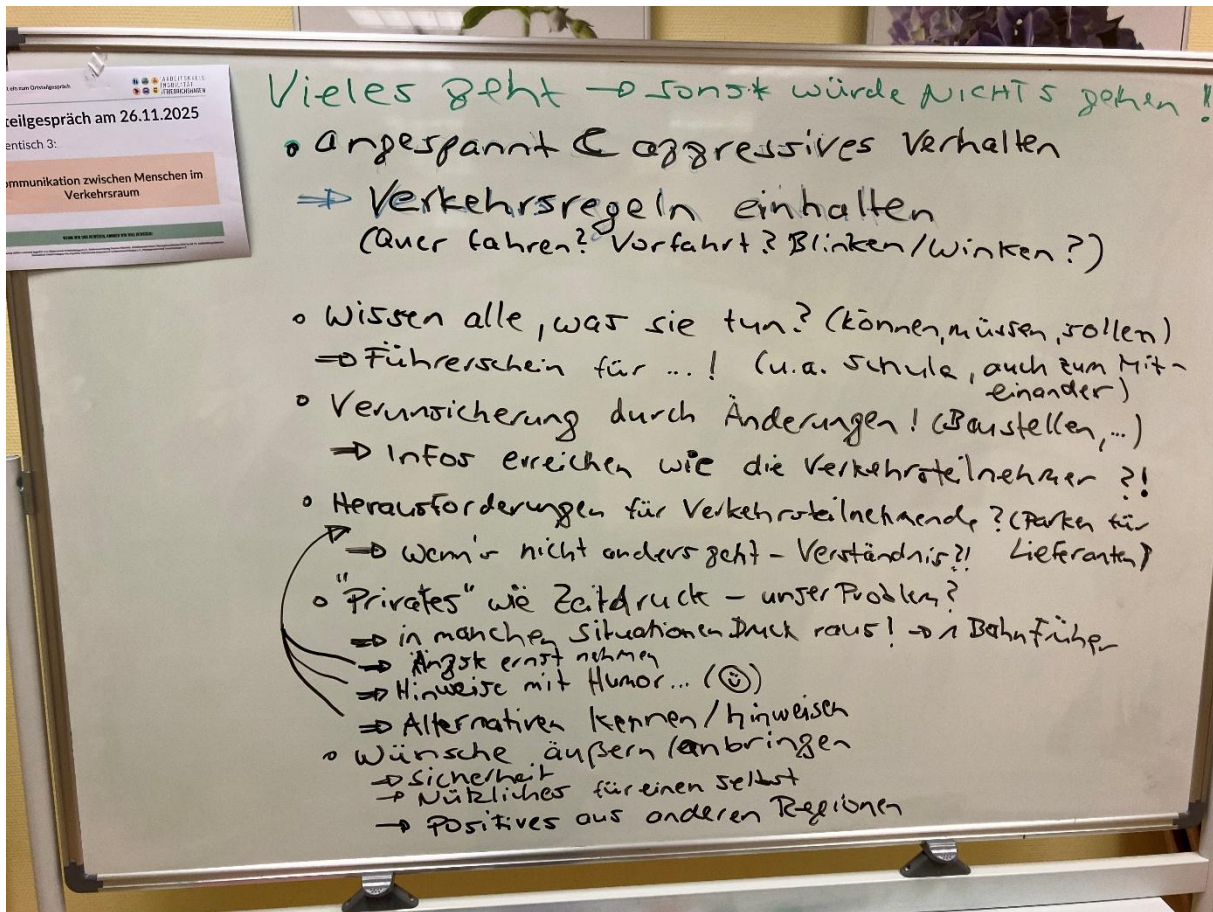 ARBEITSKREIS
MOBILITÄT
teilgespräch am 26.11.2025
entisch 3:
ommunikation zwischen Menschen im
Verkehrsraum
Vieles geht → sonst würde NICHTS gehen!
• angespannt & aggressives Verhalten
⇒ Verkehrsregeln einhalten
(Quer fahren? Vorfahrt? Blinken/Winken?)
• Wissen alle, was sie tun? (können, müssen, sollen)
⇒ Führerschein für ...! (u.a. Schule, auch zum Mit-
einander)
• Verunsicherung durch Änderungen! (Baustellen,...)
⇒ Infos erreichen wie die Verkehrsteilnehmer?!
• Herausforderungen für Verkehrsteilnehmende? (Parken für
Lieferanten)
⇒ wenn's nicht anders geht - Verständnis?!
• "Privates" wie Zeitdruck - unser Problem?
⇒ in manchen Situationen Druck raus! → 1 Bahn früher
⇒ Angst ernst nehmen
⇒ Hinweise mit Humor... (☺)
⇒ Alternativen kennen/hinweisen
• Wünsche äußern/anbringen
→ Sicherheit
→ Nützliches für einen selbst
→ Positives aus anderen Regionen